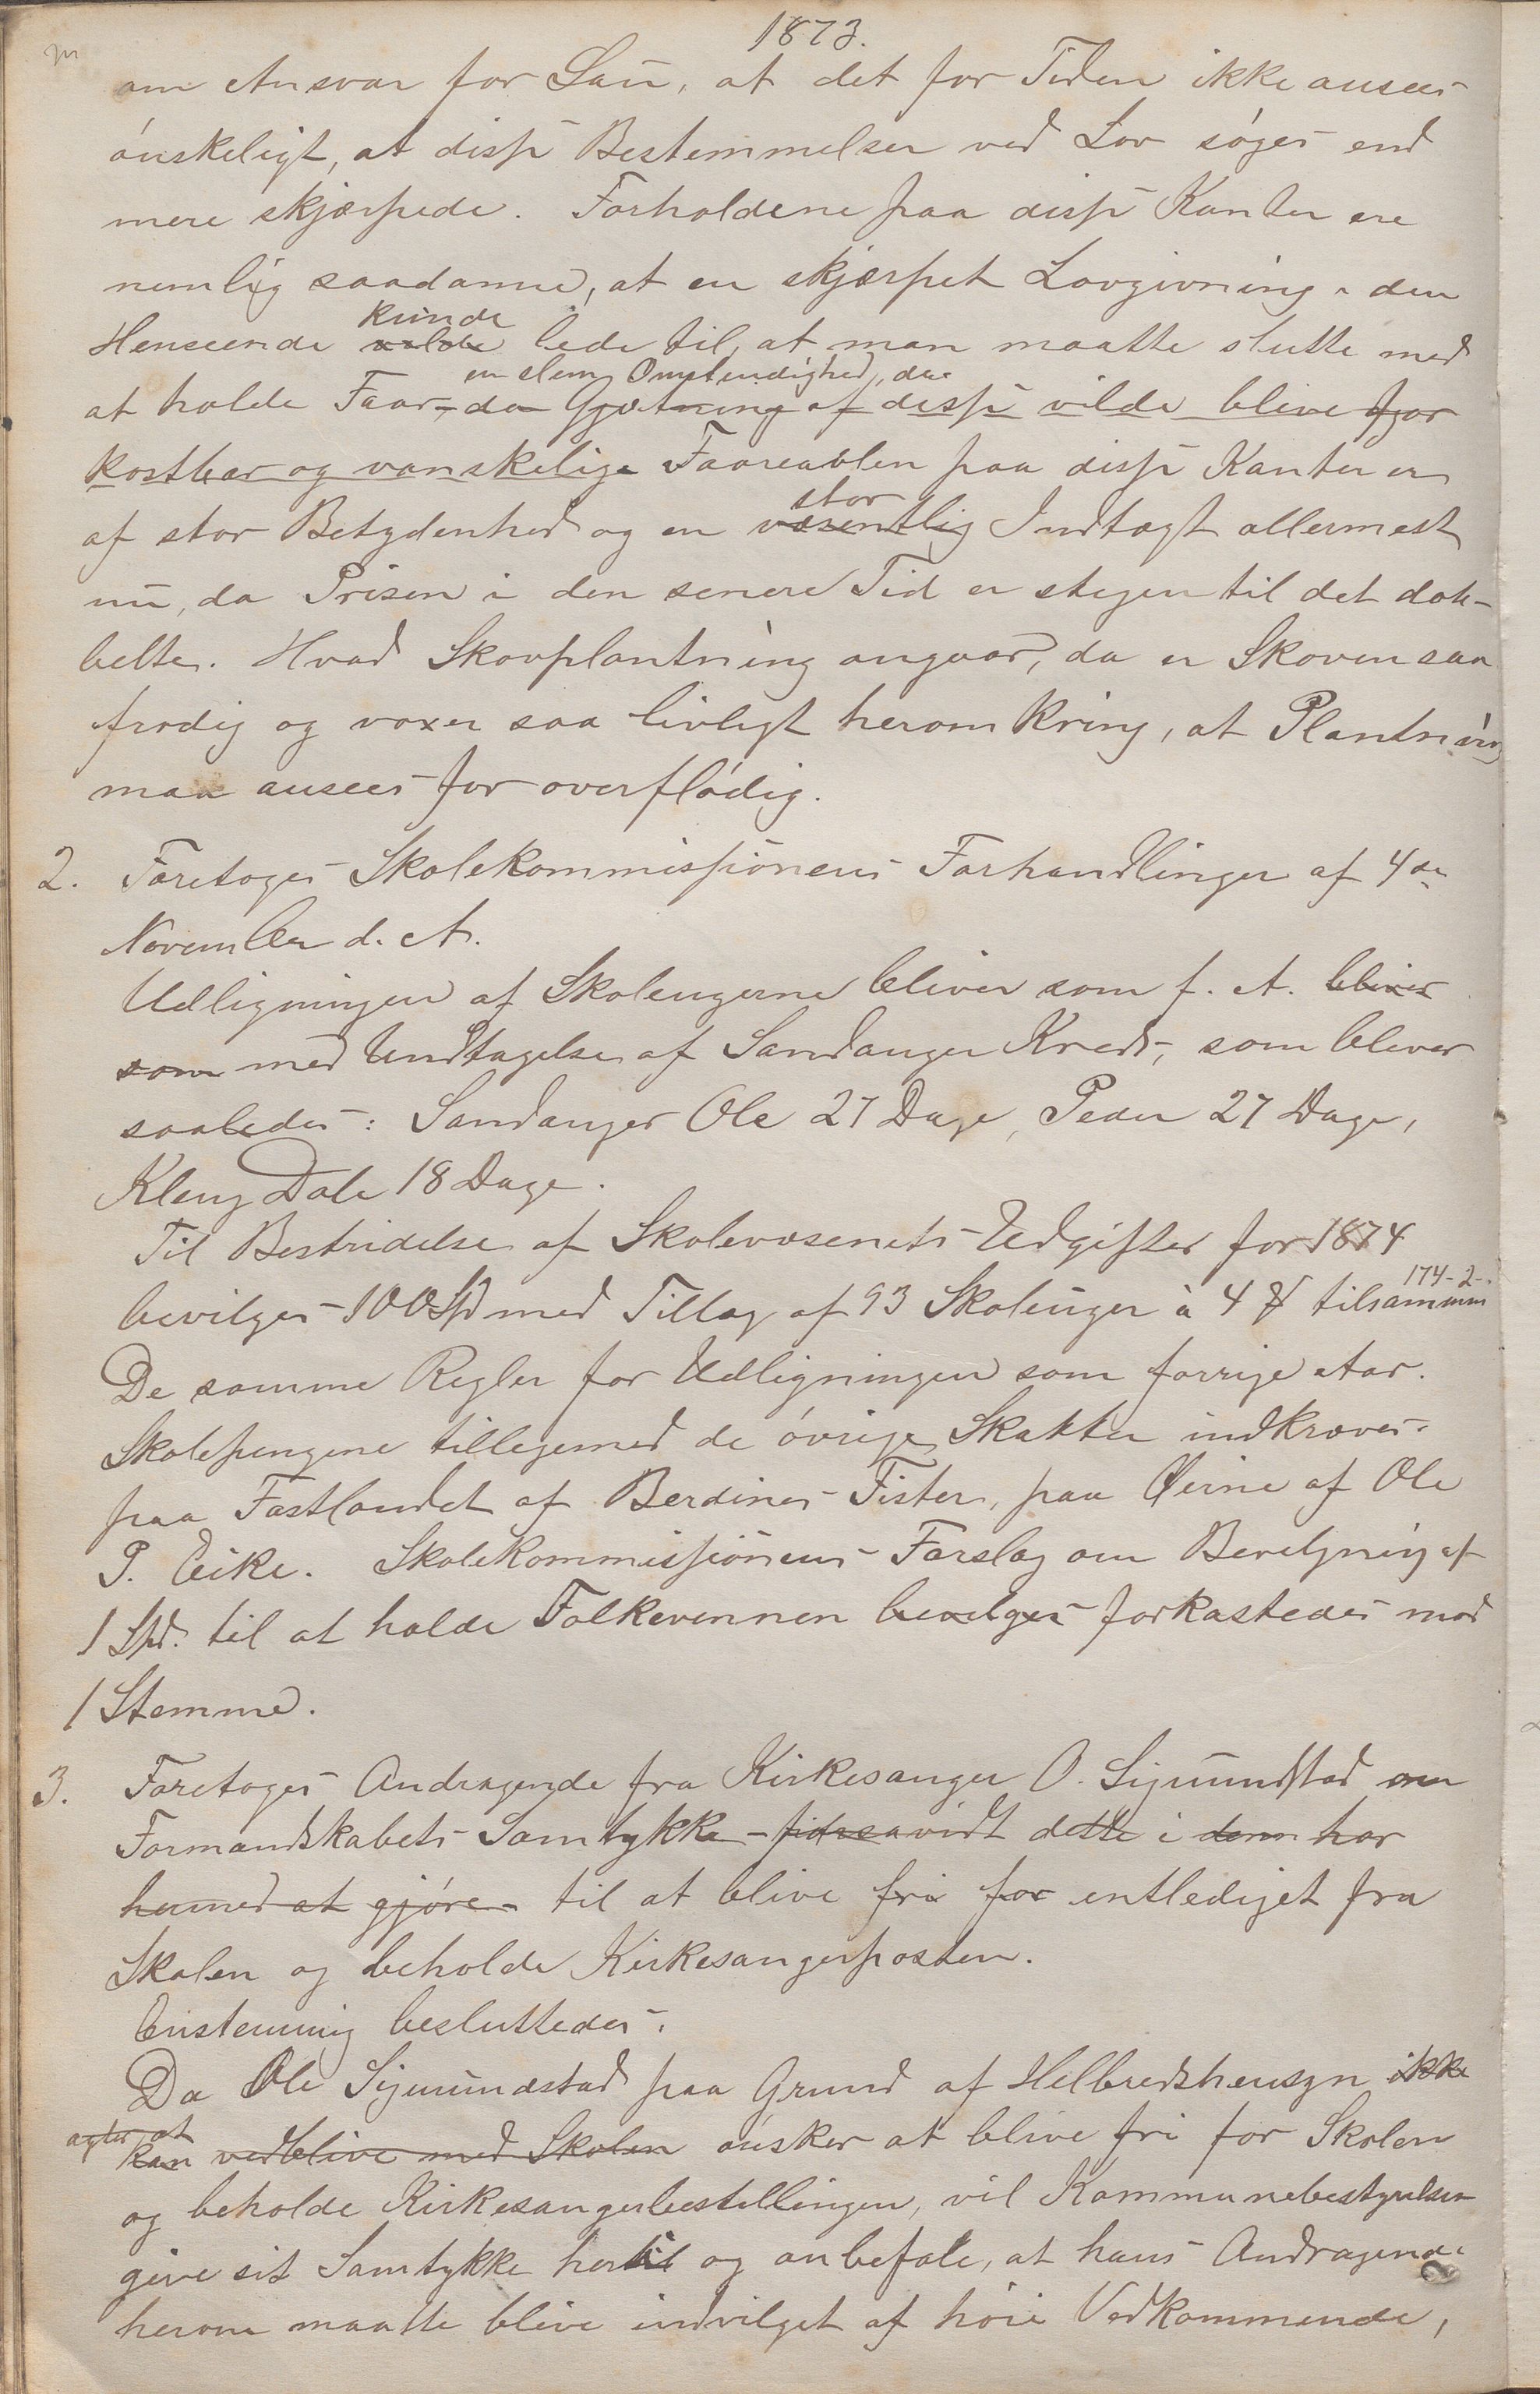 1873.
om Ansvar for Sau, at det for Tiden ikke ansees
ønskeligt, at disse Bestemmelser ved Lov søges end
mere skjærpede. Forholdene paa disse Kanter ere
nemlig saadanne, at en skjærpet Lovgivning i den
kunde
Henseende vilde lede til, at man maatte slutte med
en slem Omstendighed, da
at holde Faar, da Gjætning af disse vilde blive for
kostbar og vanskelig. Faareavlen paa disse Kanter er
stor
af stor Betydenhed og en væsentlig Indtægt allermest
nu, da Prisen i den senere Tid er stegen til det dob-
belte. Hvad Skovplantning angaar, da er Skoven saa
frodig og voxer saa livligt heromkring, at Plantning
maa ansees for overflødig.
2. Foretoges Skolekommissionens Forhandlinger af 4de
November d. A.
Udligningen af Skoleugerne bliver som f. A. bliver
som med Undtagelse af Sandanger Kreds, som bliver
saaledes: Sandanger Ole 27 Dage, Peder 27 Dage,
Kleng Dale 18 Dage.
Til Bestridelse af Skolevæsenets Udgifter for 1874
174-2-
bevilges 100 Spd med Tillæg af 93 Skoleuger à 4 ₰ tilsammen
De samme Regler for Udligningen som forrige Aar.
Skolepengene tilligemed de øvrige Skatter indkræves
paa Fastlandet af Berdines Fister, paa Øerne af Ole
P. Eike. Skolekommissionens Forslag om Bevilgning af
1 Spd. til at holde Folkevennen bevilges forkastedes mod
1 Stemme.
3. Foretoges Andragende fra Kirkesanger O. Sigmundstad om
Formandskabets Samtykke - forsaavidt dette i dem har
hermed at gjøre - til at blive fri for entlediget fra
Skolen og beholde Kirkesangerposten.
Enstemmig besluttedes:
Da Ole Sigmundstad paa Grund af Helbredshensyn ikke
agter at
kan vedblive med Skolen ønsker at blive fri for Skolen
og beholde Kirkesangerbestillingen, vil Kommunebestyrelsen
give sit Samtykke hertil og anbefale, at hans Andragende
herom maatte blive indvilget af høie Vedkommende,